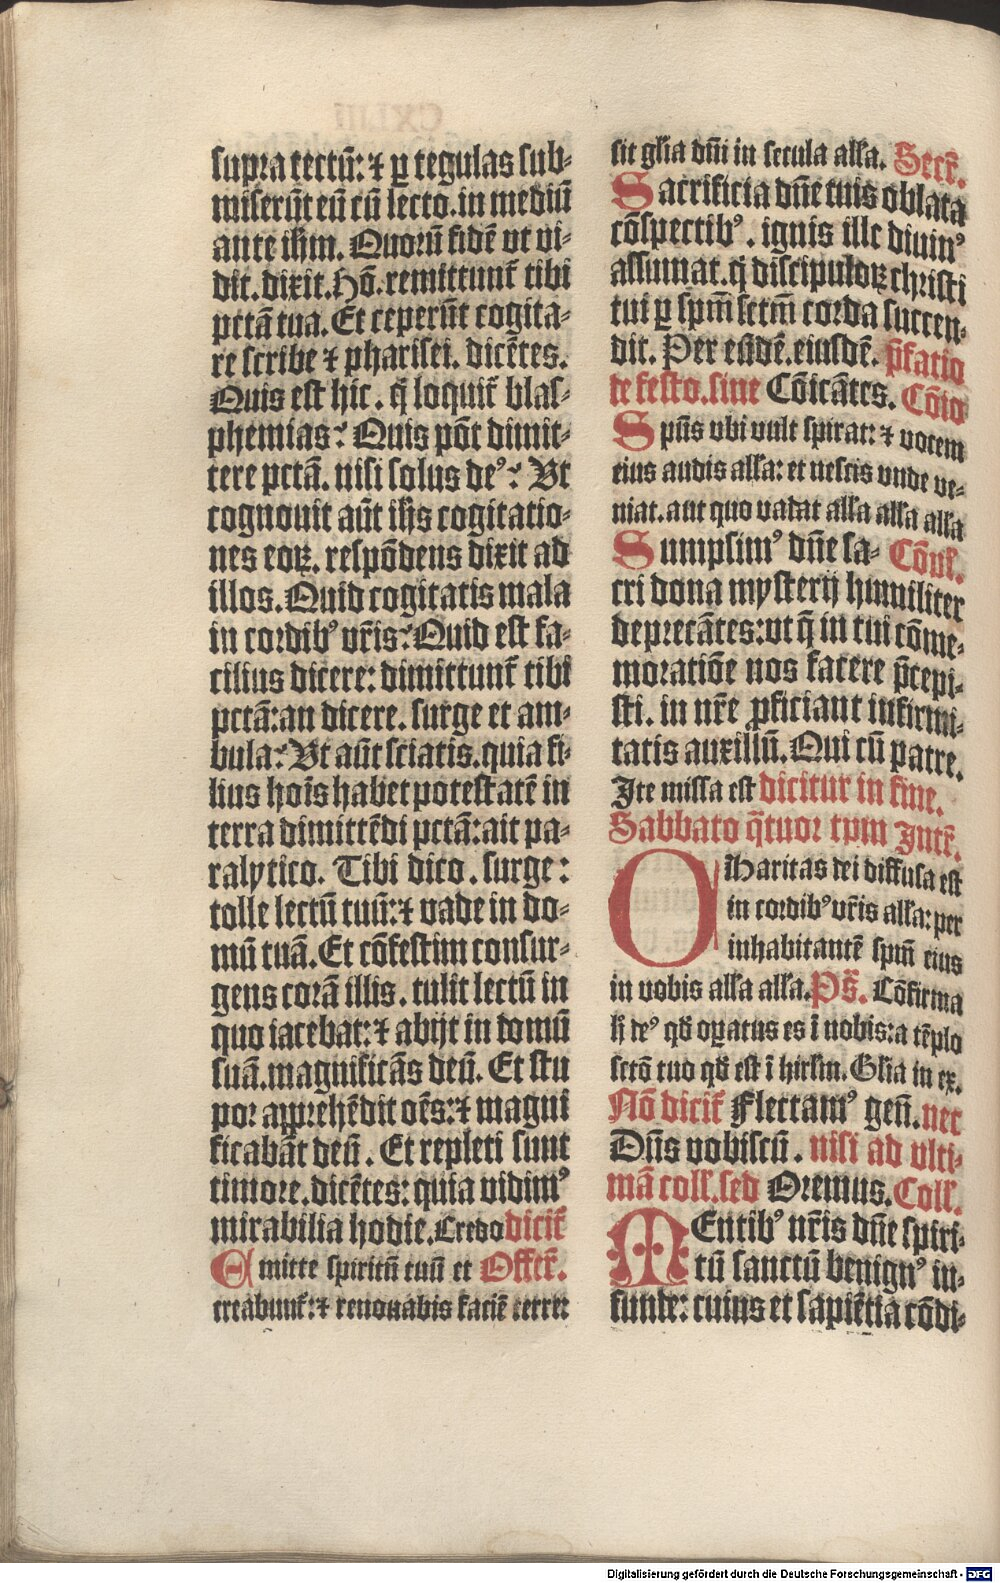 supra tectū: ⁊ ꝑ tegulas sub-
miserūt eū cū lecto. in mediū
ante ihm̄. Quorū fidē vt vi-
dit. dixit. Hō. remittunt᷑ tibi
pctā tua. Et ceperūt cogita-
re scribe ⁊ pharisei. dicētes.
Quis est hic. q̄ loquit᷑ blas-
phemias? Quis pōt dimit-
tere pctā. nisi solus deꝰ? Vt
cognouit aūt ihs̄ cogitatio-
nes eoꝝ. respōdens dixit ad
illos. Quid cogitatis mala
in cordibꝰ vr̄is? Quid est fa-
cilius dicere: dimittunt᷑ tibi
pctā: an dicere. surge et am-
bula? Vt aūt sciatis. quia fi-
lius hoīs habet potestatē in
terra dimittēdi pctā: ait pa-
ralytico. Tibi dico. surge:
tolle lectū tuū: ⁊ vade in do-
mū tuā. Et cōfestim consur-
gens corā illis. tulit lectū in
quo iacebat: ⁊ abijt in domū
suā. magnificās deū. Et stu
por apprehēdit oēs: ⁊ magni
ficabāt deū. Et repleti sunt
timore. dicētes: quia vidimꝰ
mirabilia hodie. Credo dicit᷑
Emitte spiritū tuū et Offert᷑.
creabunt᷑: ⁊ renouabis faciē terre:
sit gl̄ia dn̄i in secula all̄a. Secr̄.
Sacrificia dn̄e tuis oblata
cōspectibꝰ. ignis ille diuinꝰ
assumat. q̄ discipuloꝝ christi
tui ꝑ spm̄ sctm̄ corda succen-
dit. Per eūdē. eiusdē. p̄fatio
de festo. sine Cōicātes. Cōio
Spūs vbi vult spirat: ⁊ vocem
eius audis all̄a: et nescis vnde ve-
niat. aut quo vadat all̄a all̄a all̄a
Sumpsimꝰ dn̄e sa- Cōpl̄.
cri dona mysterij humiliter
deprecātes: vt q̄ in tui cōme-
moratiōe nos facere p̄cepi-
sti. in nr̄e ꝓficiant infirmi-
tatis auxiliū. Qui cū patre.
Ite missa est dicitur in fine.
Sabbato q̄tuor tpm̄ Intr̄.
Charitas dei diffusa est
in cordibꝰ vr̄is all̄a: per
inhabitantē spm̄ eius
in vobis all̄a all̄a. Ps̄. Cōfirma
h̄ deꝰ qd̄ oꝑatus es ī nobis: a tēplo
sctō tuo qd̄ est ī hirlm̄. Gl̄ia in ex.
Nō dicit᷑ Flectamꝰ gen̄. nec
Dn̄s vobiscū. nisi ad vlti-
mā coll̄. sed Oremus. Coll̄.
MEntibꝰ nr̄is dn̄e spiri-
tū sanctū benignꝰ in-
funde: cuius et sapiētia cōdi-
Digitalisierung gefördert durch die Deutsche Forschungsgemeinschaft - DFG